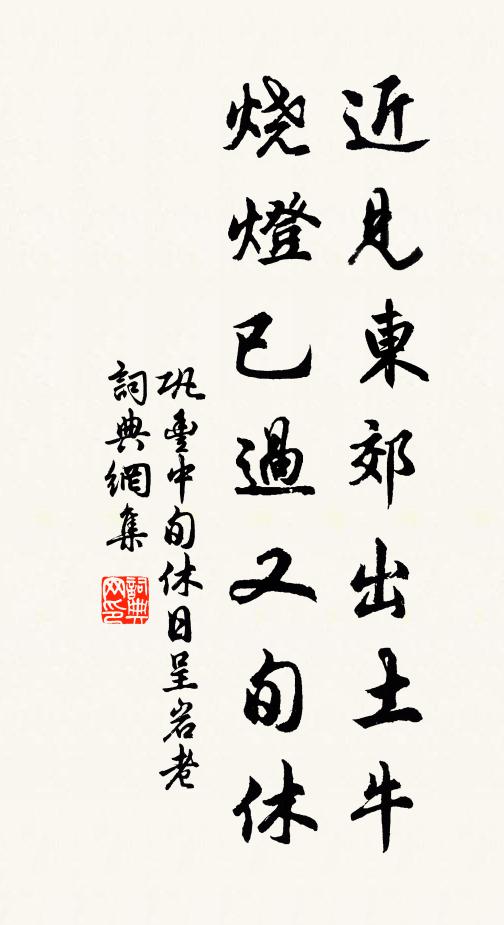 近見東郊出土牛
烧燈已過又旬休
巩豊中旬休日呈岩老
詞典網集
詞典網印